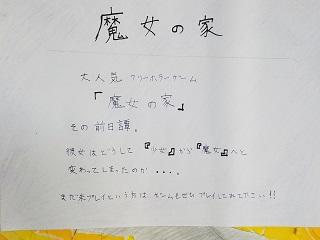 魔女の家
大人気 フリーホラーゲーム
『魔女の家』
その前日譚。
彼女はどうして『少女』から『魔女』へと
変わってしまったのか・・・・
まだ未プレイという方は ゲームもぜひプレイしてみて下さい!!